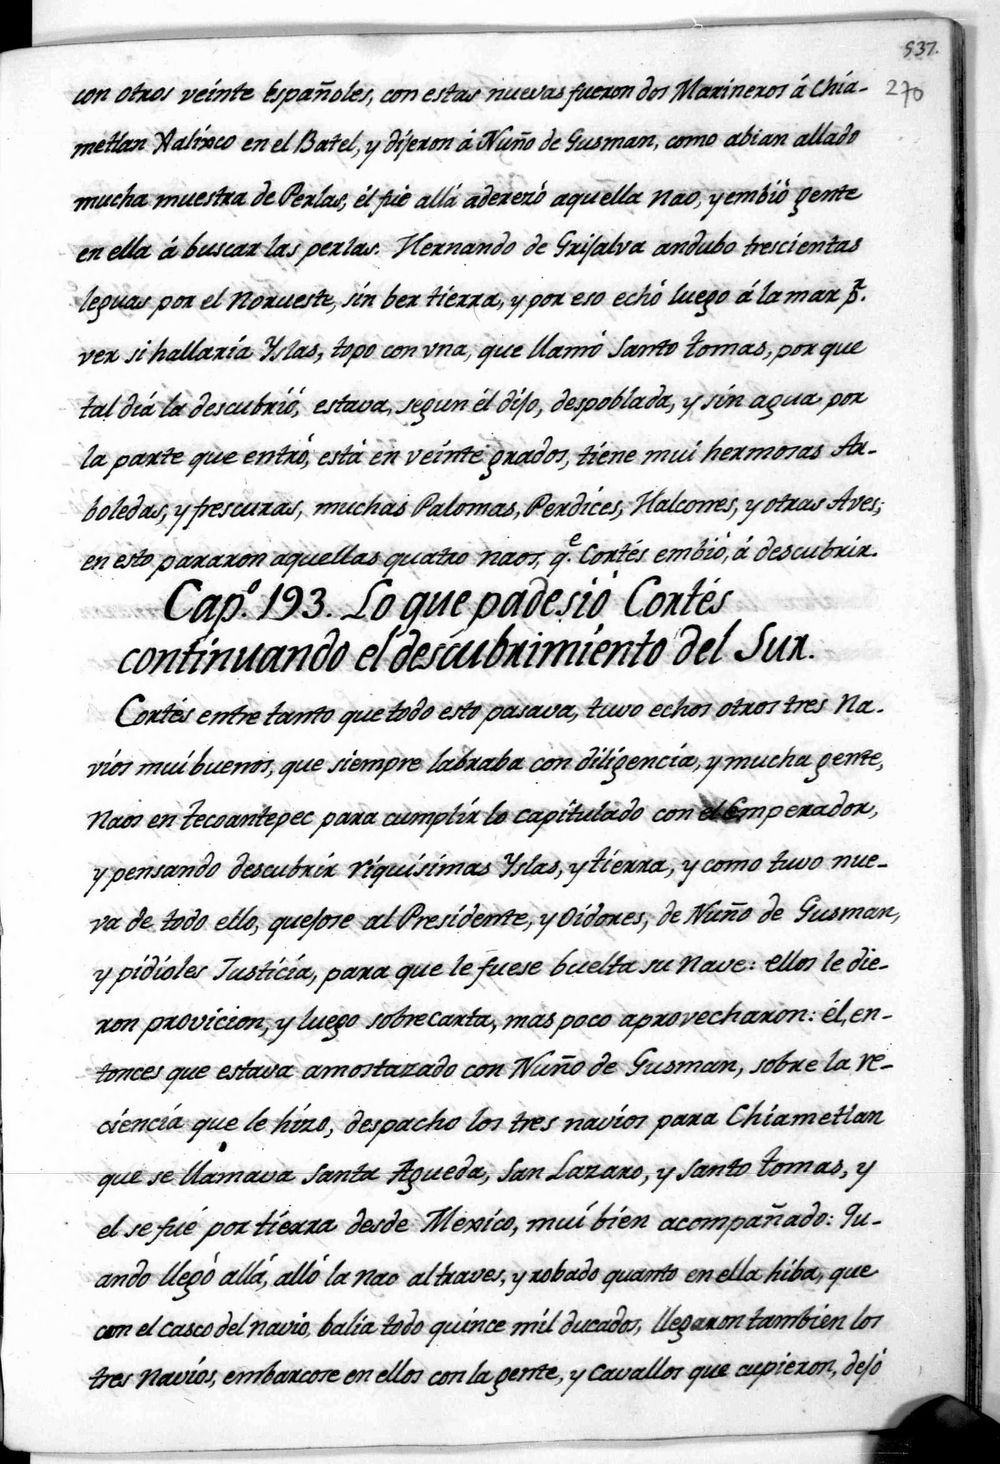 537.
270
con otros veinte Españoles, con estas nuevas fueron dos Marineros á Chia-
metlan Xalixco en el Batel, y dijeron á Nuño de Gusman, como abian allado
mucha muestra de Perlas, él fué allá aderezò aquella nao, y embiò gente
en ella á buscar las perlas. Hernando de Grijalva andubo trescientas
leguas por el Norueste, sin ber tierra, y por eso echó luego á la mar pr.
ver si hallaria Yslas, topo con vna, que llamó Santo tomas, por que
tal diá la descubrió, estava, segun él dijo, despoblada, y sin agua por
la parte que entró, está en veinte grados, tiene mui hermosas Ar-
boledas, y frescuras, muchas Palomas, Perdices, Halcones, y otras Aves;
en esto pararon aquellas quatro naos, qe. Cortés embió, á descubrir.
Capo. 193. Lo que padesió Cortés
continuando el descubrimiento del Sur.
Cortés entre tanto que todo esto pasava, tuvo echos otros tres Na-
vios mui buenos, que siempre labraba con diligencia, y mucha gente,
Naos en tecoantepec para cumplir lo capitulado con el Emperador,
y pensando descubrir riquisimas Yslas, y tierra, y como tuvo nue-
va de todo ello, quejose al Presidente, y Oidores, de Nuño de Gusman,
y pidioles Justicia, para que le fuese buelta su nave: ellos le die-
ron provicion, y luego sobrecarta, mas poco aprovecharon: él, en-
tonces que estava amostazado con Nuño de Gusman, sobre la re-
ciencia que le hizo, despacho los tres navios para Chiametlan
que se llamava Santa Agueda, San Lazaro, y Santo tomas, y
el se fué por tierra desde Mexico, mui bien acompañado: Qu-
ando llegò allá, alló la nao al traves, y robado quanto en ella hiba, que
con el casco del navio, balia todo quince mil ducados, llegaron tambien los
tres Navios, embarcose en ellos con la gente, y cavallos que cupieron, dejó